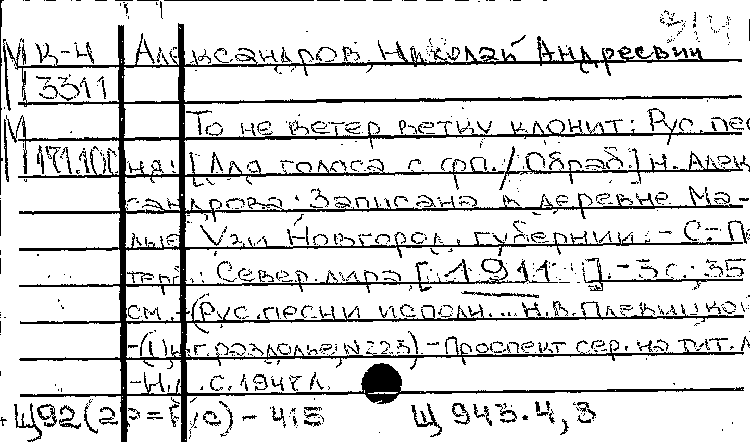 3/41
М К-Н Александров, Николай Андреевич
3311
То не ветер ветку клонит: Рус. пес
М 171.100 ня: [Для голоса с фп. / Обраб.] Н. Алек
сандрова: Записана в деревне Ма-
лые Узи Новгород. губернии. - С.-Пе
терб.: Север. лира, [1911]. - 3 с.; 35
см. - (Рус. песни исполн. ... Н.В. Плевицкой
- Проспект сер. на тит. л
с. 1947 л.
Щ92(2Р=Рус) - 415 Щ 943.4, 3